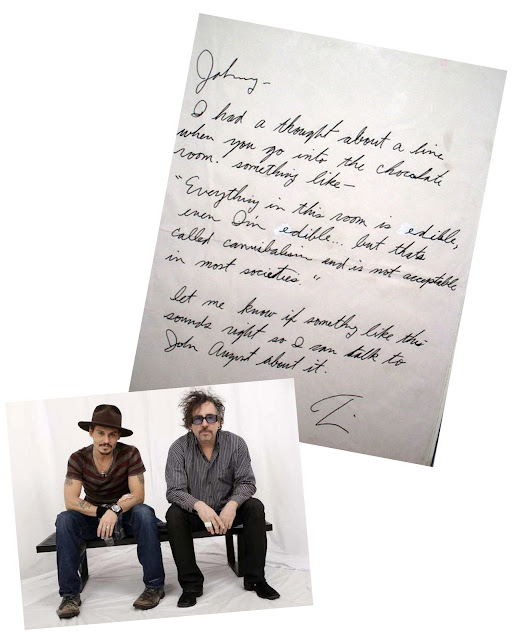 Johnny-
I had a thought about a line
when you go into the chocolate
room. something like-
"Everything in this room is edible,
even I'm edible... but thats
called cannibalism and is not acceptable
in most societies."
let me know if somethg like this
sounds right so I can talk to
John August about it.